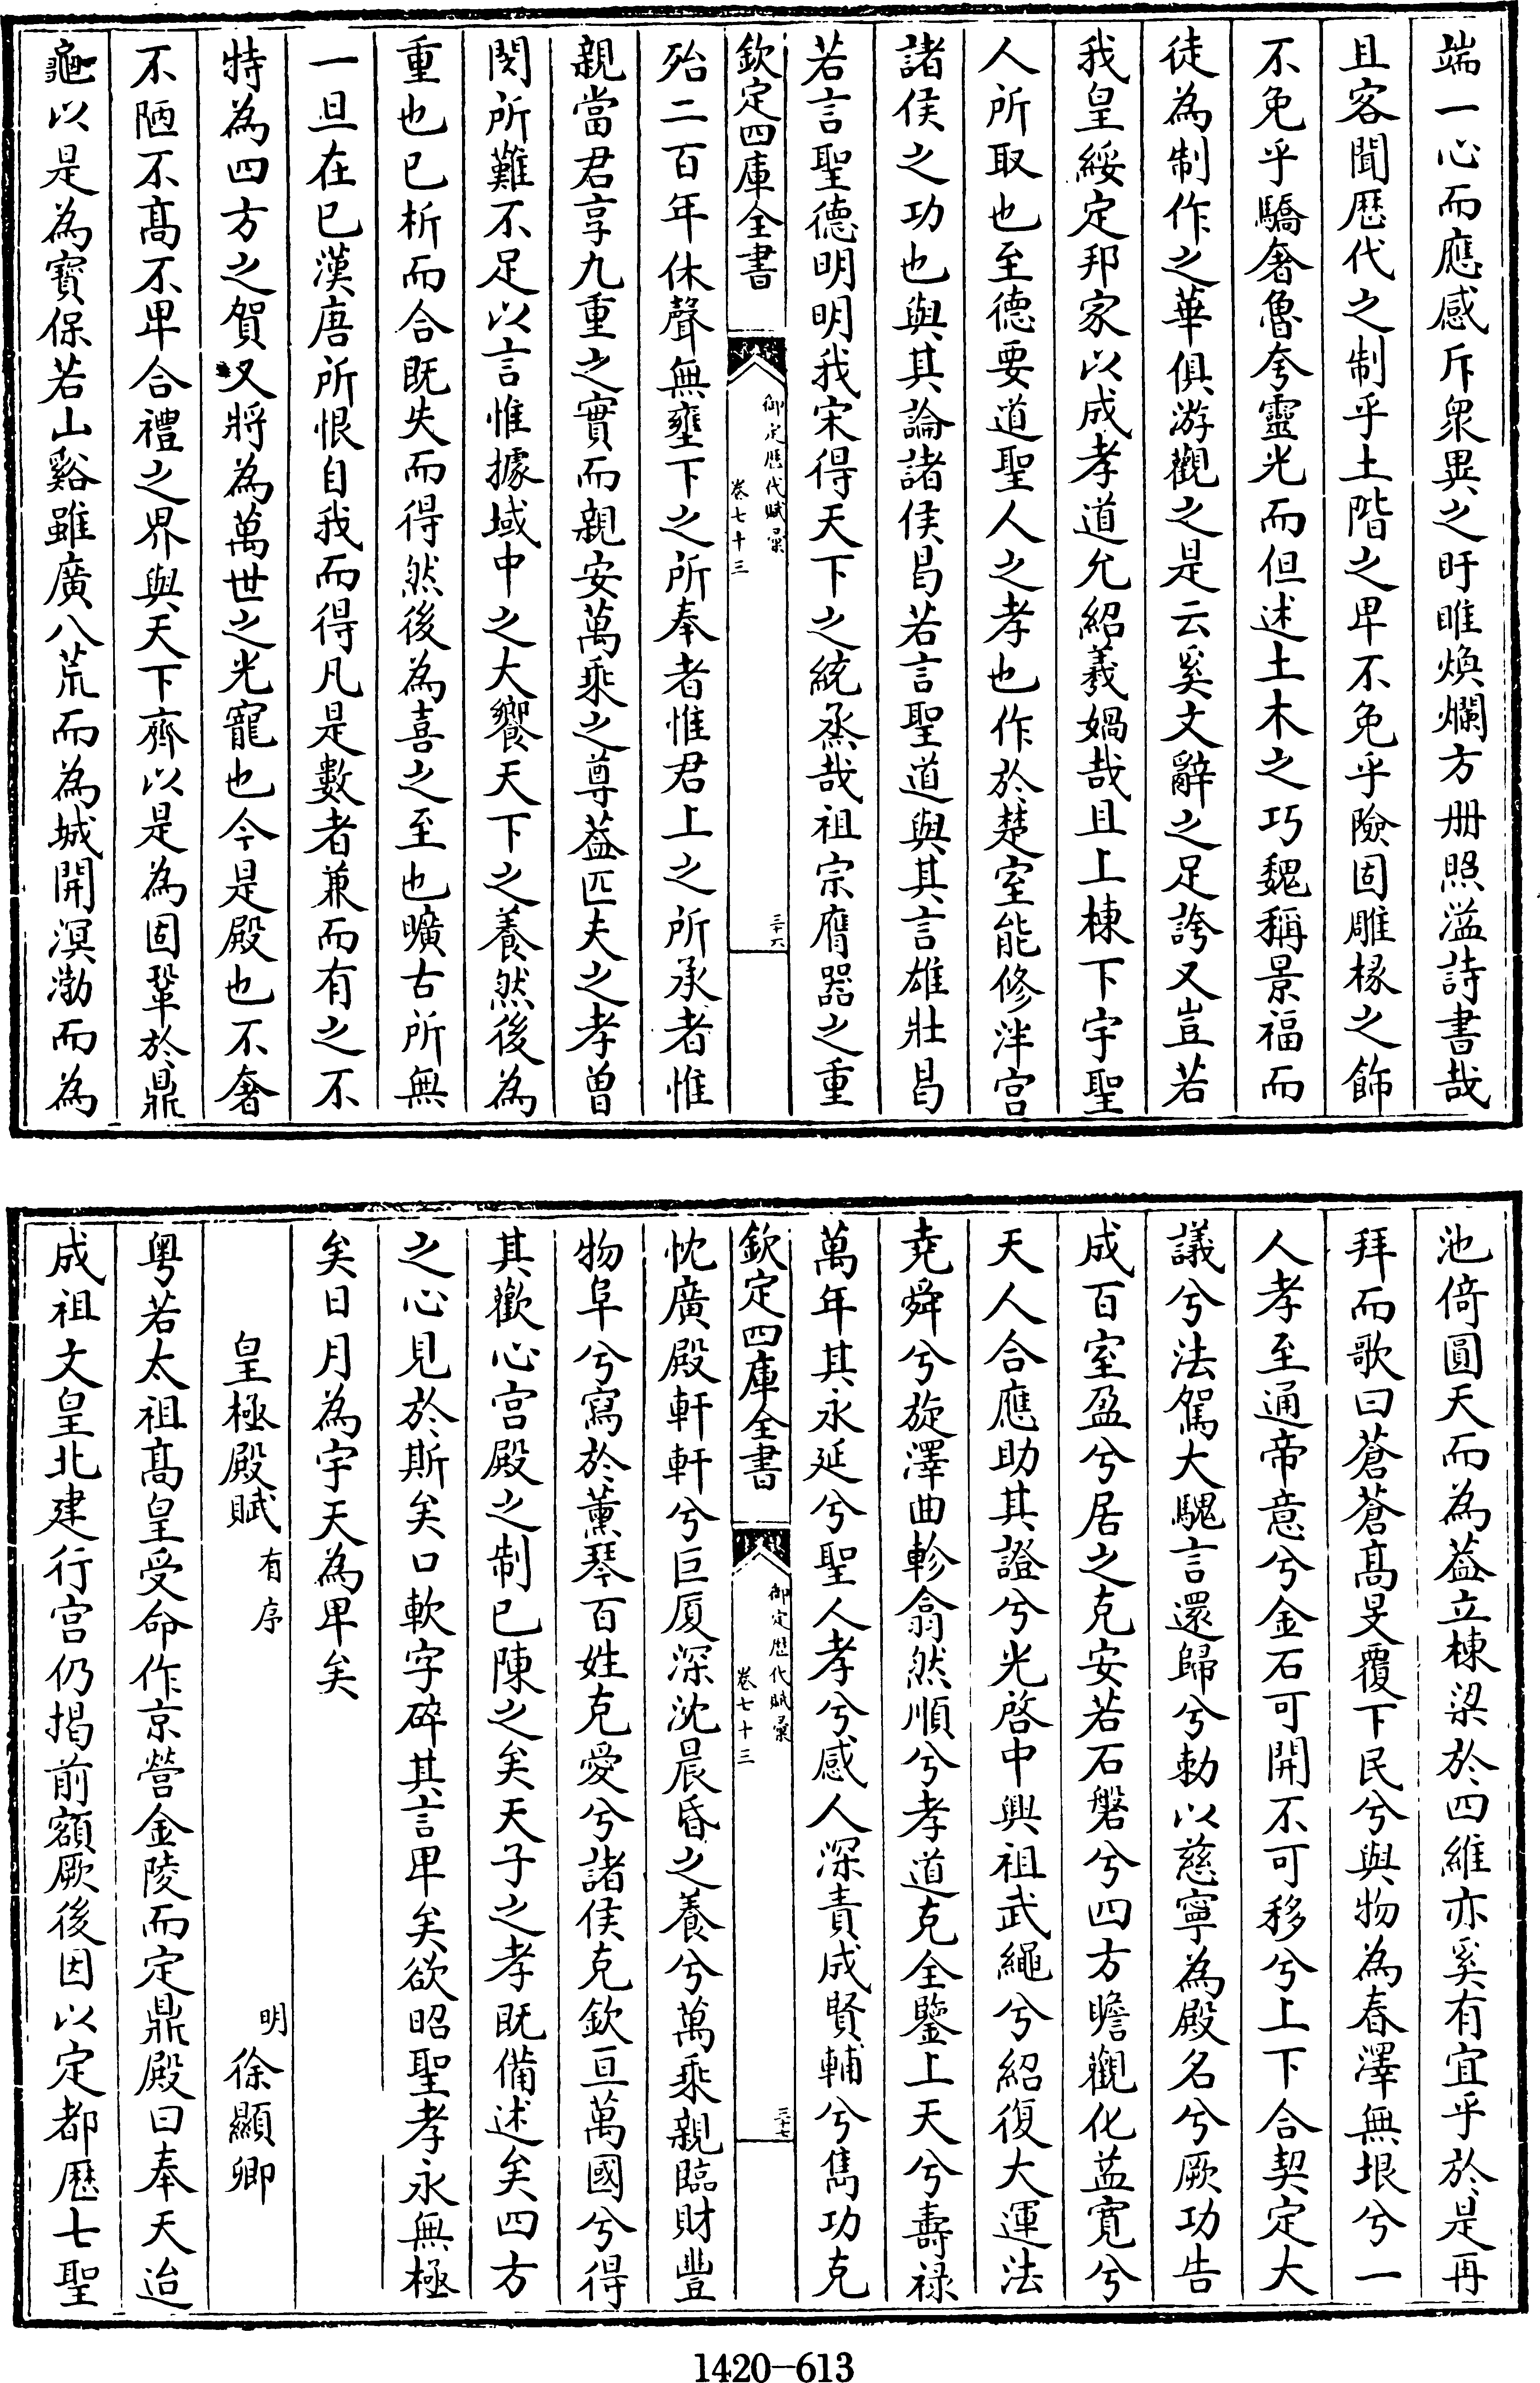 端一心而應感斥衆異之盱睢煥爛方册照溢詩書哉
且客聞歴代之制乎土階之卑不免乎險固雕椽之飾
不免乎驕奢魯夸靈光而但述土木之巧魏稱景福而
徒為制作之華俱游觀之是云奚文辭之足誇又豈若
我皇綏定邦家以成孝道允紹羲媧哉且上棟下宇聖
人所取也至德要道聖人之孝也作於楚室能修泮宮
諸侯之功也與其論諸侯曷若言聖道與其言雄壯曷
若言聖德明明我宋得天下之統烝哉祖宗膺器之重
欽定四庫全書
御定歴代賦彙
卷七十三
三十六
殆二百年休聲無壅下之所奉者惟君上之所承者惟
親當君享九重之實而親安萬乘之尊葢匹夫之孝曾
閔所難不足以言惟據域中之大饗天下之養然後為
重也已析而合既失而得然後為喜之至也曠古所無
一旦在已漢唐所恨自我而得凡是數者兼而有之不
特為四方之賀又將為萬世之光寵也今是殿也不奢
不陋不髙不卑合禮之界與天下齊以是為固鞏於鼎
龜以是為寳保若山谿雖廣八荒而為城開溟渤而為
池倚圓天而為葢立棟梁於四維亦奚有宜乎於是再
拜而歌曰蒼蒼髙旻覆下民兮與物為春澤無垠兮一
人孝至通帝意兮金石可開不可移兮上下合契定大
議兮法駕大騩言還歸兮勅以慈寧為殿名兮厥功告
成百室盈兮居之克安若石磐兮四方瞻觀化葢寛兮
天人合應助其證兮光啓中興祖武繩兮紹復大運法
堯舜兮旋澤曲軫翕然順兮孝道克全鑒上天兮壽禄
萬年其永延兮聖人孝兮感人深責成賢輔兮雋功克
欽定四庫全書
御定歴代賦彙
卷七十三
三十七
忱廣殿軒軒兮巨厦深沈晨昏之養兮萬乘親臨財豐
物阜兮寫於薰琴百姓克愛兮諸侯克欽亘萬國兮得
其歡心宮殿之制已陳之矣天子之孝既備述矣四方
之心見於斯矣口軟字碎其言卑矣欲昭聖孝永無極
矣日月為宇天為卑矣
皇極殿賦 有序 明 徐顯卿
粤若太祖髙皇受命作京營金陵而定鼎殿曰奉天迨
成祖文皇北建行宫仍揭前額厥後因以定都歴七聖
1420-613